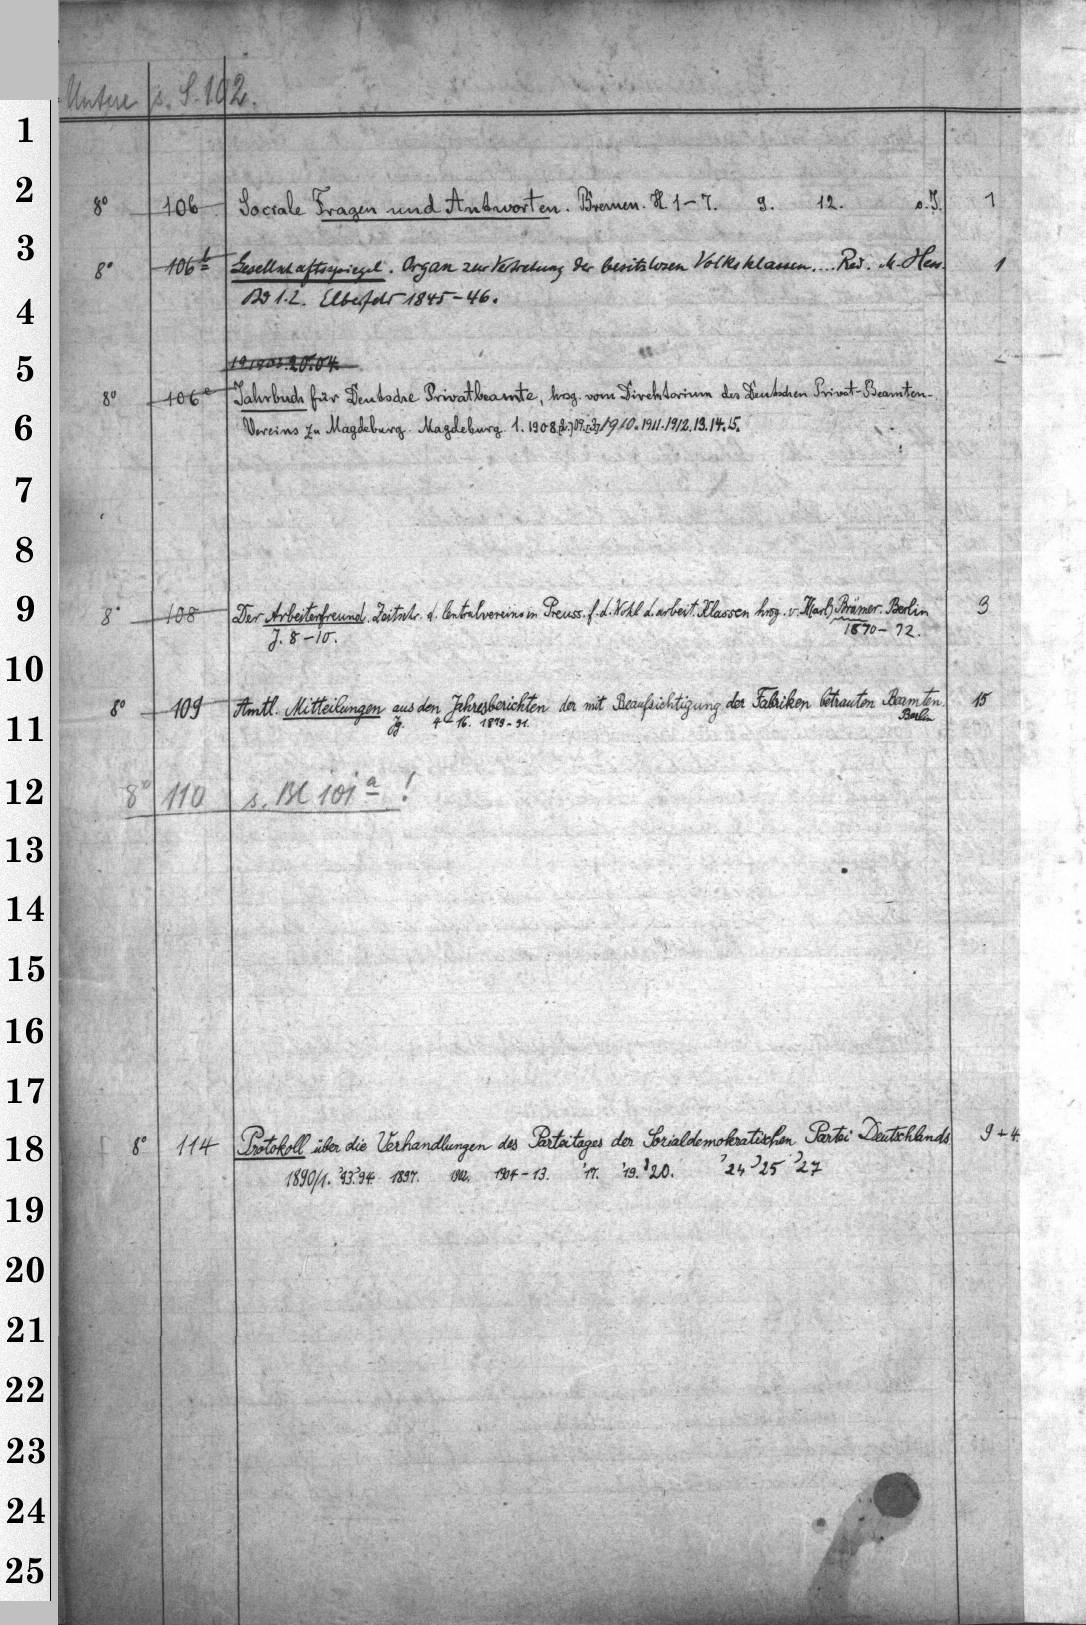 Untere s. S. 102.
1
2
8° 106 Sociale Fragen und Antworten. Bremen. H 1-7. 9. 12. o.J. 1
3
8° 106b Gesellschaftsspiegel. Organ zur Vertretung der besitzlosen Volksklassen.... Red. M. Hess. 1
4
Bd 1.2. Elberfeld 1845-46.
5
19 1903. 20.04.
8° 106c Jahrbuch für Deutsche Privatbeamte, hrsg. vom Direktorium des Deutschen Privat-Beamten-
6
Vereins zu Magdeburg. Magdeburg 1. 1908. 09. 1910. 1911. 1912. 13. 14. 15.
7
8
9
8° 108 Der Arbeiterfreund. Zeitschr. d. Centralvereins in Preuss. f. d. Wohl d. arbeit. Klassen hrsg. v. Karl Brämer. Berlin 3
J. 8-10. 1870-72.
10
8° 109 Amtl. Mitteilungen aus den Jahresberichten der mit Beaufsichtigung der Fabriken betrauten Beamten. 15
11
Jg. 4-16. 1879-91. Berlin
12
8° 110 s. Bl 101a !
13
14
15
16
17
18
8° 114 Protokoll über die Verhandlungen des Parteitages der Sozialdemokratischen Partei Deutschlands 9+4
1890/1. '93. '94. 1897. 1902. 1904-13. '17. '19. '20. '24 '25 '27
19
20
21
22
23
24
25